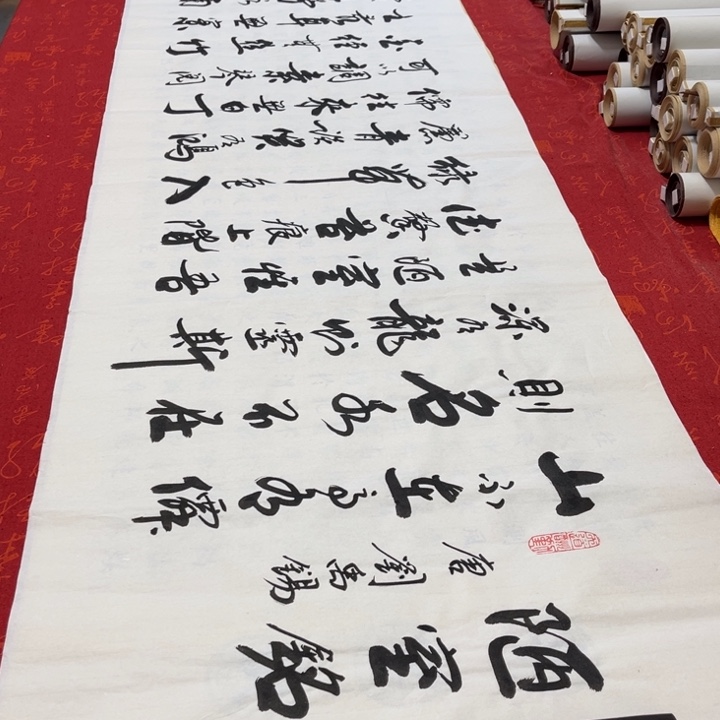 陋室銘
唐劉禹錫
山不在高有僊
則名水不在
深有龍則靈斯
是陋室惟吾
德馨苔痕上階
綠草色入
簾青談笑有鴻
儒往來無白丁
可以調素琴閱
金經無絲竹